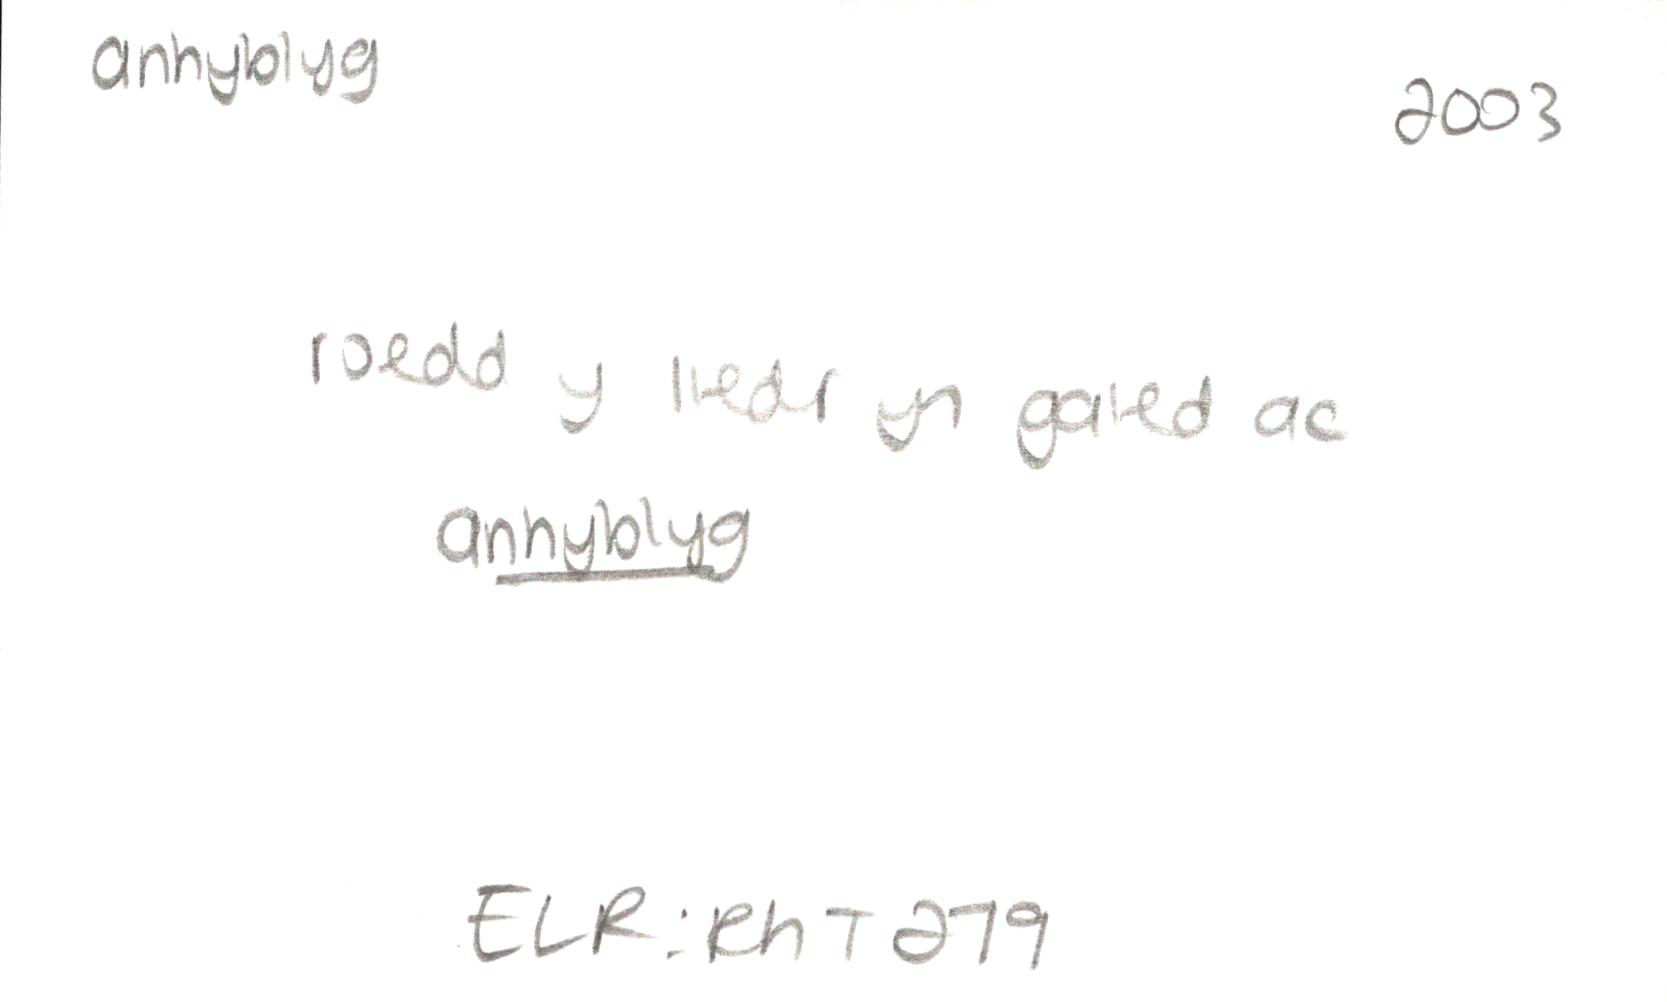 anhyblyg
2003
roedd y lledr yn galed ac
anhyblyg
ELR: RhT 279